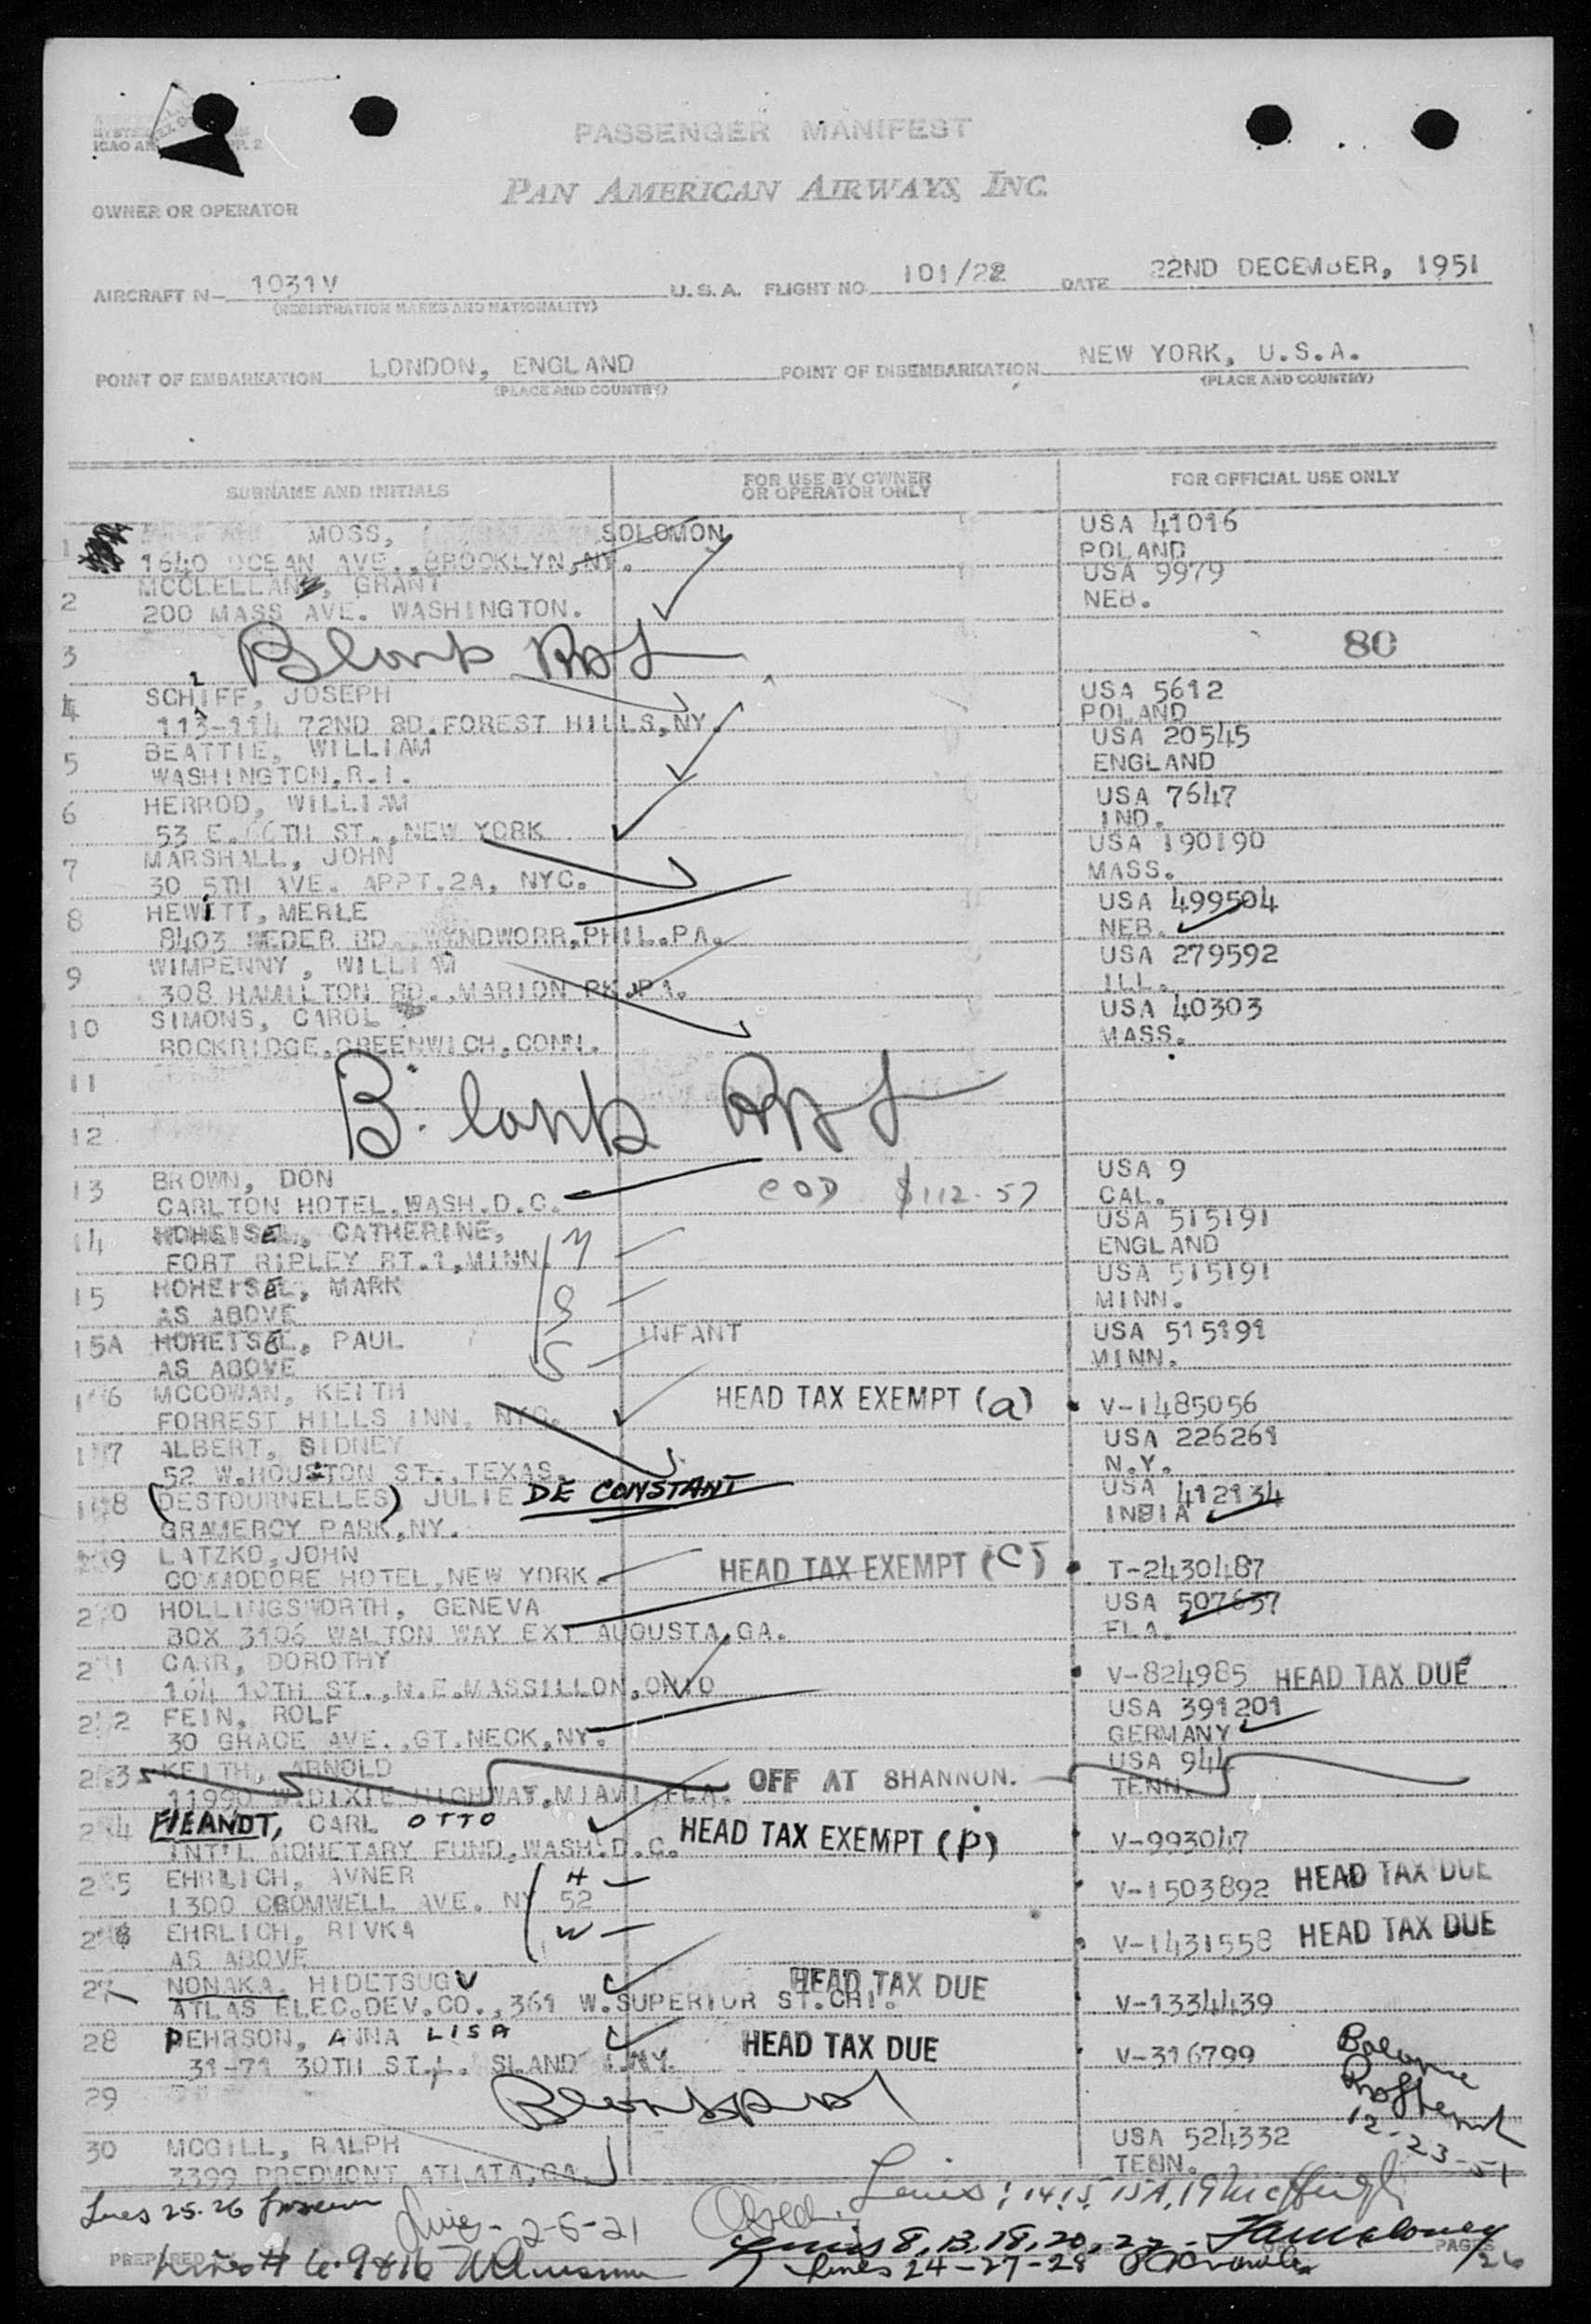 PASSENGER MANIFEST
PAN AMERICAN AIRWAYS, INC.
OWNER OR OPERATOR
AIRCRAFT N- 1031V U.S.A. FLIGHT NO 101/22 DATE 22ND DECEMBER, 1951
(REGISTRATION MARKS AND NATIONALITY)
POINT OF EMBARKATION LONDON, ENGLAND POINT OF DISEMBARKATION NEW YORK, U.S.A.
(PLACE AND COUNTRY) (PLACE AND COUNTRY)
SURNAME AND INITIALS FOR USE BY OWNER OR OPERATOR ONLY FOR OFFICIAL USE ONLY
1 MOSS, SOLOMON USA 41016
1640 OCEAN AVE., BROOKLYN, NY. POLAND
2 MCCLELLAN, GRANT USA 9979
200 MASS AVE. WASHINGTON. NEB.
3 Blank 80
4 SCHIFF, JOSEPH USA 5612
113-114 72ND RD. FOREST HILLS, NY. POLAND
5 BEATTIE, WILLIAM USA 20545
WASHINGTON, R.I. ENGLAND
6 HERROD, WILLIAM USA 7647
53 E. 66TH ST., NEW YORK IND.
7 MARSHALL, JOHN USA 190190
30 5TH AVE. APPT.2A, NYC. MASS.
8 HEWITT, MERLE USA 499504
8403 RD., WYNDWORR, PHIL. PA. NEB.
9 WIMPENNY, WILLIAM USA 279592
308 HAMILTON RD., MARION PK. PA. ILL.
10 SIMONS, CAROL USA 40303
ROCKRIDGE, GREENWICH, CONN. MASS.
11
Blank
12
13 BROWN, DON USA 9
CARLTON HOTEL, WASH. D.C. COD $112.57 CAL.
14 HOHEISEL, CATHERINE, M USA 515191
FORT RIPLEY RT.1, MINN. ENGLAND
15 HOHEISEL, MARK S USA 515191
AS ABOVE MINN.
15A HOHEISEL, PAUL S INFANT USA 515191
AS ABOVE MINN.
16 MCCOWAN, KEITH HEAD TAX EXEMPT (a) V-1485056
FORREST HILLS INN, NYC.
17 ALBERT, SIDNEY USA 226261
52 W. HOUSTON ST., TEXAS. N.Y.
18 (DESTOURNELLES) JULIE DE CONSTANT USA 412134
GRAMERCY PARK, NY. INDIA
19 LATZKO, JOHN HEAD TAX EXEMPT (C) T-2430487
COMMODORE HOTEL, NEW YORK.
20 HOLLINGSWORTH, GENEVA USA 507637
BOX 3106 WALTON WAY EXT AUGUSTA, GA. FLA.
21 CARR, DOROTHY V-824985 HEAD TAX DUE
164 10TH ST., N.E. MASSILLON, OHIO
22 FEIN, ROLF USA 391201
30 GRACE AVE., GT. NECK, NY. GERMANY
23 KEITH, ARNOLD OFF AT SHANNON. USA 944
11990 W. DIXIE HIGHWAY, MIAMI, FLA. TENN.
24 FIEANDT, CARL OTTO HEAD TAX EXEMPT (P) V-993047
INT'L MONETARY FUND, WASH. D.C.
25 EHRLICH, AVNER H V-1503892 HEAD TAX DUE
1300 CROMWELL AVE. NY 52
26 EHRLICH, RIVKA W V-1431558 HEAD TAX DUE
AS ABOVE
27 NONAKA, HIDETSUGU HEAD TAX DUE V-1334439
ATLAS ELEC. DEV. CO., 361 W. SUPERIOR ST. CHI.
28 PEHRSON, ANNA LISA HEAD TAX DUE V-316799
31-71 30TH ST. L. SLAND NY.
29 Blank
12-23-51
30 MCGILL, RALPH USA 524332
3399 PIEDMONT ATLATA, GA. TENN.
Lines: 14, 15, 15A, 19
Lines 25.26
Lines - 2-5-21
Lines 8, 13, 18, 20, 22 -
PREPARED PAGES
Lines # 6.9&16
Lines 24-27-28
26